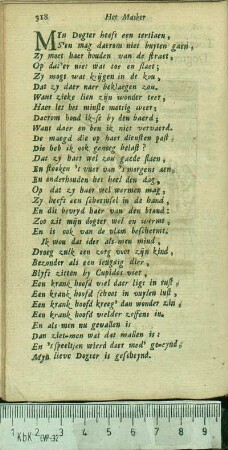 518 Het Masker
MYn Dogter heeft een tertiaen,
S'en mag daerom niet buyten gaen,
Zy moet haer houden van de straet,
Op dat'er niet wat toe en slaet;
Zy mogt wat krijgen in de kou,
Dat zy daer naer beklaegen zou.
Want zieke lien zijn wonder teer,
Haer let het minste motrig weer;
Daerom houd ik-se by den haerd;
Want daer en ben ik niet vervaerd.
De maegd die op haer diensten past
Die heb ik ook genoeg belast?
Dat zy hart wel zou gaede slaen,
En stooken 't vuer van 's morgens aen,
En onderhouden het heel den dag,
Op dat zy haer wel wermen mag;
Zy heeft een schermsel in de hand,
En dit bevryd haer van den brand:
Zoo zit mijn dogter wel en wermt,
En is ook van de vlam beschermt.
Ik wou dat ider als-men mind,
Droeg zulk een zorg voor zijn kind,
Bezonder als een jeugdig dier,
Blyft zitten by Cupidos vier,
Een krank hoofd viel daer ligt in lust,
Een krank hoofd schoot in vuylen lust,
Een krank hoofd kreeg' dan wonder zin,
Een krank hoofd welder zeffens in.
En als-men nu gevallen is
Dan ziet-men wat dat mallen is:
En 't speeltjen wierd daer med' gewend,
Myn lieve Dogter is geschend.
KbK LW-32
1 2 3 4 5 6 7 8 9